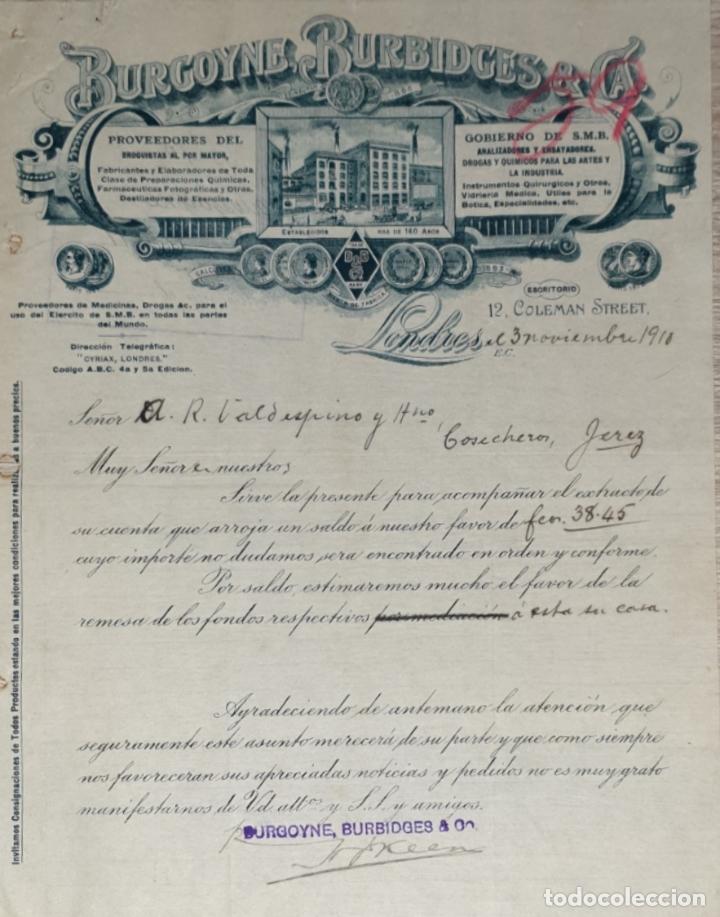 BURGOYNE, BURBIDGES & CA.
59
PROVEEDORES DEL
DROGUISTAS AL POR MAYOR,
Fabricantes y Elaboradores de Toda
Clase de Preparaciones Quimicas,
Farmaceuticas Fotográficas y Otros,
Destiladores de Esencias.
GOBIERNO DE S.M.B.
ANALIZADORES Y ENSAYADORES.
DROGAS Y QUIMICOS PARA LAS ARTES Y
LA INDUSTRIA.
Instrumentos Quirurgicos y Otros,
Vidrieria Medica, Utiles para la
Botica, Especialidades, etc.
ESTABLECIDOS MAS DE 160 AÑOS
Proveedores de Medicinas, Drogas &c. para el
uso del Ejercito de S.M.B. en todas las partes
del Mundo.
Dirección Telegráfica:
"CYRIAX, LONDRES."
Codigo A.B.C. 4a y 5a Edicion.
ESCRITORIO
12, COLEMAN STREET,
Londres, el 3 noviembre 1910
E.C.
Señor A. R. Valdespino y Hno,
Cosecheros, Jerez
Muy Señor nuestro;
Sirve la presente para acompañar el extracto de
su cuenta que arroja un saldo á nuestro favor de fcs. 38.45
cuyo importe no dudamos sera encontrado en orden y conforme.
Por saldo, estimaremos mucho el favor de la
remesa de los fondos respectivos por mediación á esta su casa.
Agradeciendo de antemano la atención que
seguramente este asunto merecerá de su parte y que como siempre
nos favoreceran sus apreciadas noticias y pedidos no es muy grato
manifestarnos de Vd. attos y S.S. y amigos.
BURGOYNE, BURBIDGES & Co.
Invitamos Consignaciones de Todos Productos estando en las mejores condiciones para realizarlas a buenos precios.
todocoleccion